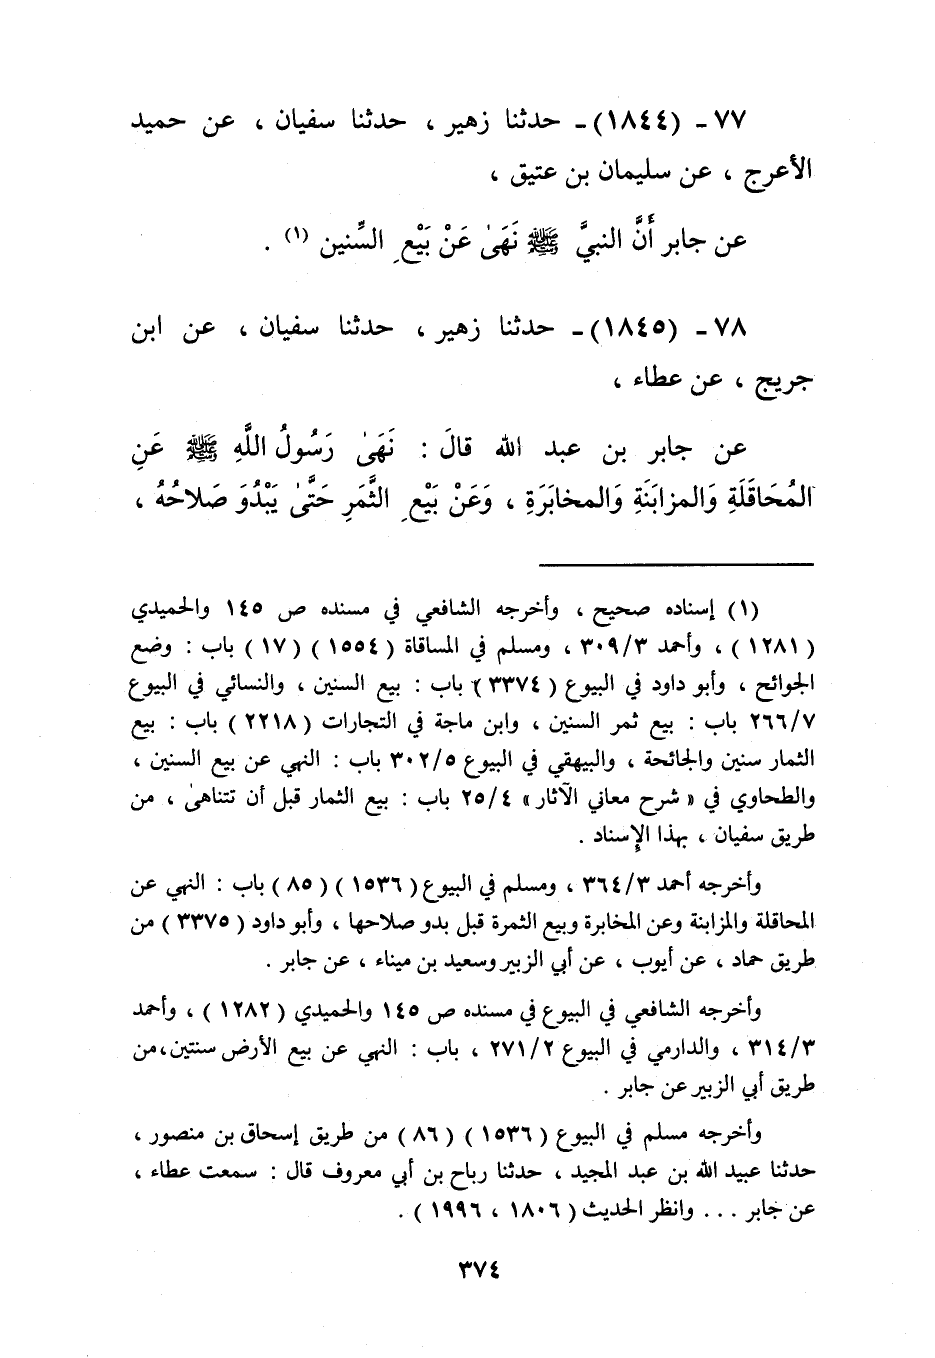 ٧٧ ـ (١٨٤٤)ـ حدثنا زهير ، حدثنا سفيان ، عن حميد
الأعرج ، عن سليمان بن عتيق ،
عن جابر أَنَّ النبيَّ ﷺ نَهَىٰ عَنْ بَيْعِ السِّنين (١) .
٧٨ ـ (١٨٤٥)ـ حدثنا زهير ، حدثنا سفيان ، عن ابن
جريج ، عن عطاء ،
عن جابر بن عبد الله قالَ : نَهَىٰ رَسُولُ اللَّهِ ﷺ عَنِ
المُحَاقَلَةِ وَالمزابَنَةِ وَالمخابَرَةِ ، وَعَنْ بَيْعِ الثَّمَرِ حَتَّىٰ يَبْدُوَ صَلاحُهُ ،
(١) إسناده صحيح ، وأخرجه الشافعي في مسنده ص ١٤٥ والحميدي
(١٢٨١) ، وأحمد ٣٠٩/٣ ، ومسلم في المساقاة (١٥٥٤) (١٧) باب : وضع
الجوائح ، وأبو داود في البيوع (٣٣٧٤) باب : بيع السنين ، والنسائي في البيوع
٢٦٦/٧ باب : بيع ثمر السنين ، وابن ماجة في التجارات (٢٢١٨) باب : بيع
الثمار سنين والجائحة ، والبيهقي في البيوع ٣٠٢/٥ باب : النهي عن بيع السنين ،
والطحاوي في «شرح معاني الآثار» ٢٥/٤ باب : بيع الثمار قبل أن تتناهىٰ ، من
طريق سفيان ، بهذا الإسناد .
وأخرجه أحمد ٣٦٤/٣ ، ومسلم في البيوع (١٥٣٦) (٨٥) باب : النهي عن
المحاقلة والمزابنة وعن المخابرة وبيع الثمرة قبل بدو صلاحها ، وأبو داود (٣٣٧٥) من
طريق حماد ، عن أيوب ، عن أبي الزبير وسعيد بن ميناء ، عن جابر .
وأخرجه الشافعي في البيوع في مسنده ص ١٤٥ والحميدي (١٢٨٢) ، وأحمد
٣١٤/٣ ، والدارمي في البيوع ٢٧١/٢ ، باب : النهي عن بيع الأرض سنتين،من
طريق أبي الزبير عن جابر .
وأخرجه مسلم في البيوع (١٥٣٦) (٨٦) من طريق إسحاق بن منصور ،
حدثنا عبيد الله بن عبد المجيد ، حدثنا رباح بن أبي معروف قال : سمعت عطاء ،
عن جابر ... وانظر الحديث (١٨٠٦ ، ١٩٩٦) .
٣٧٤